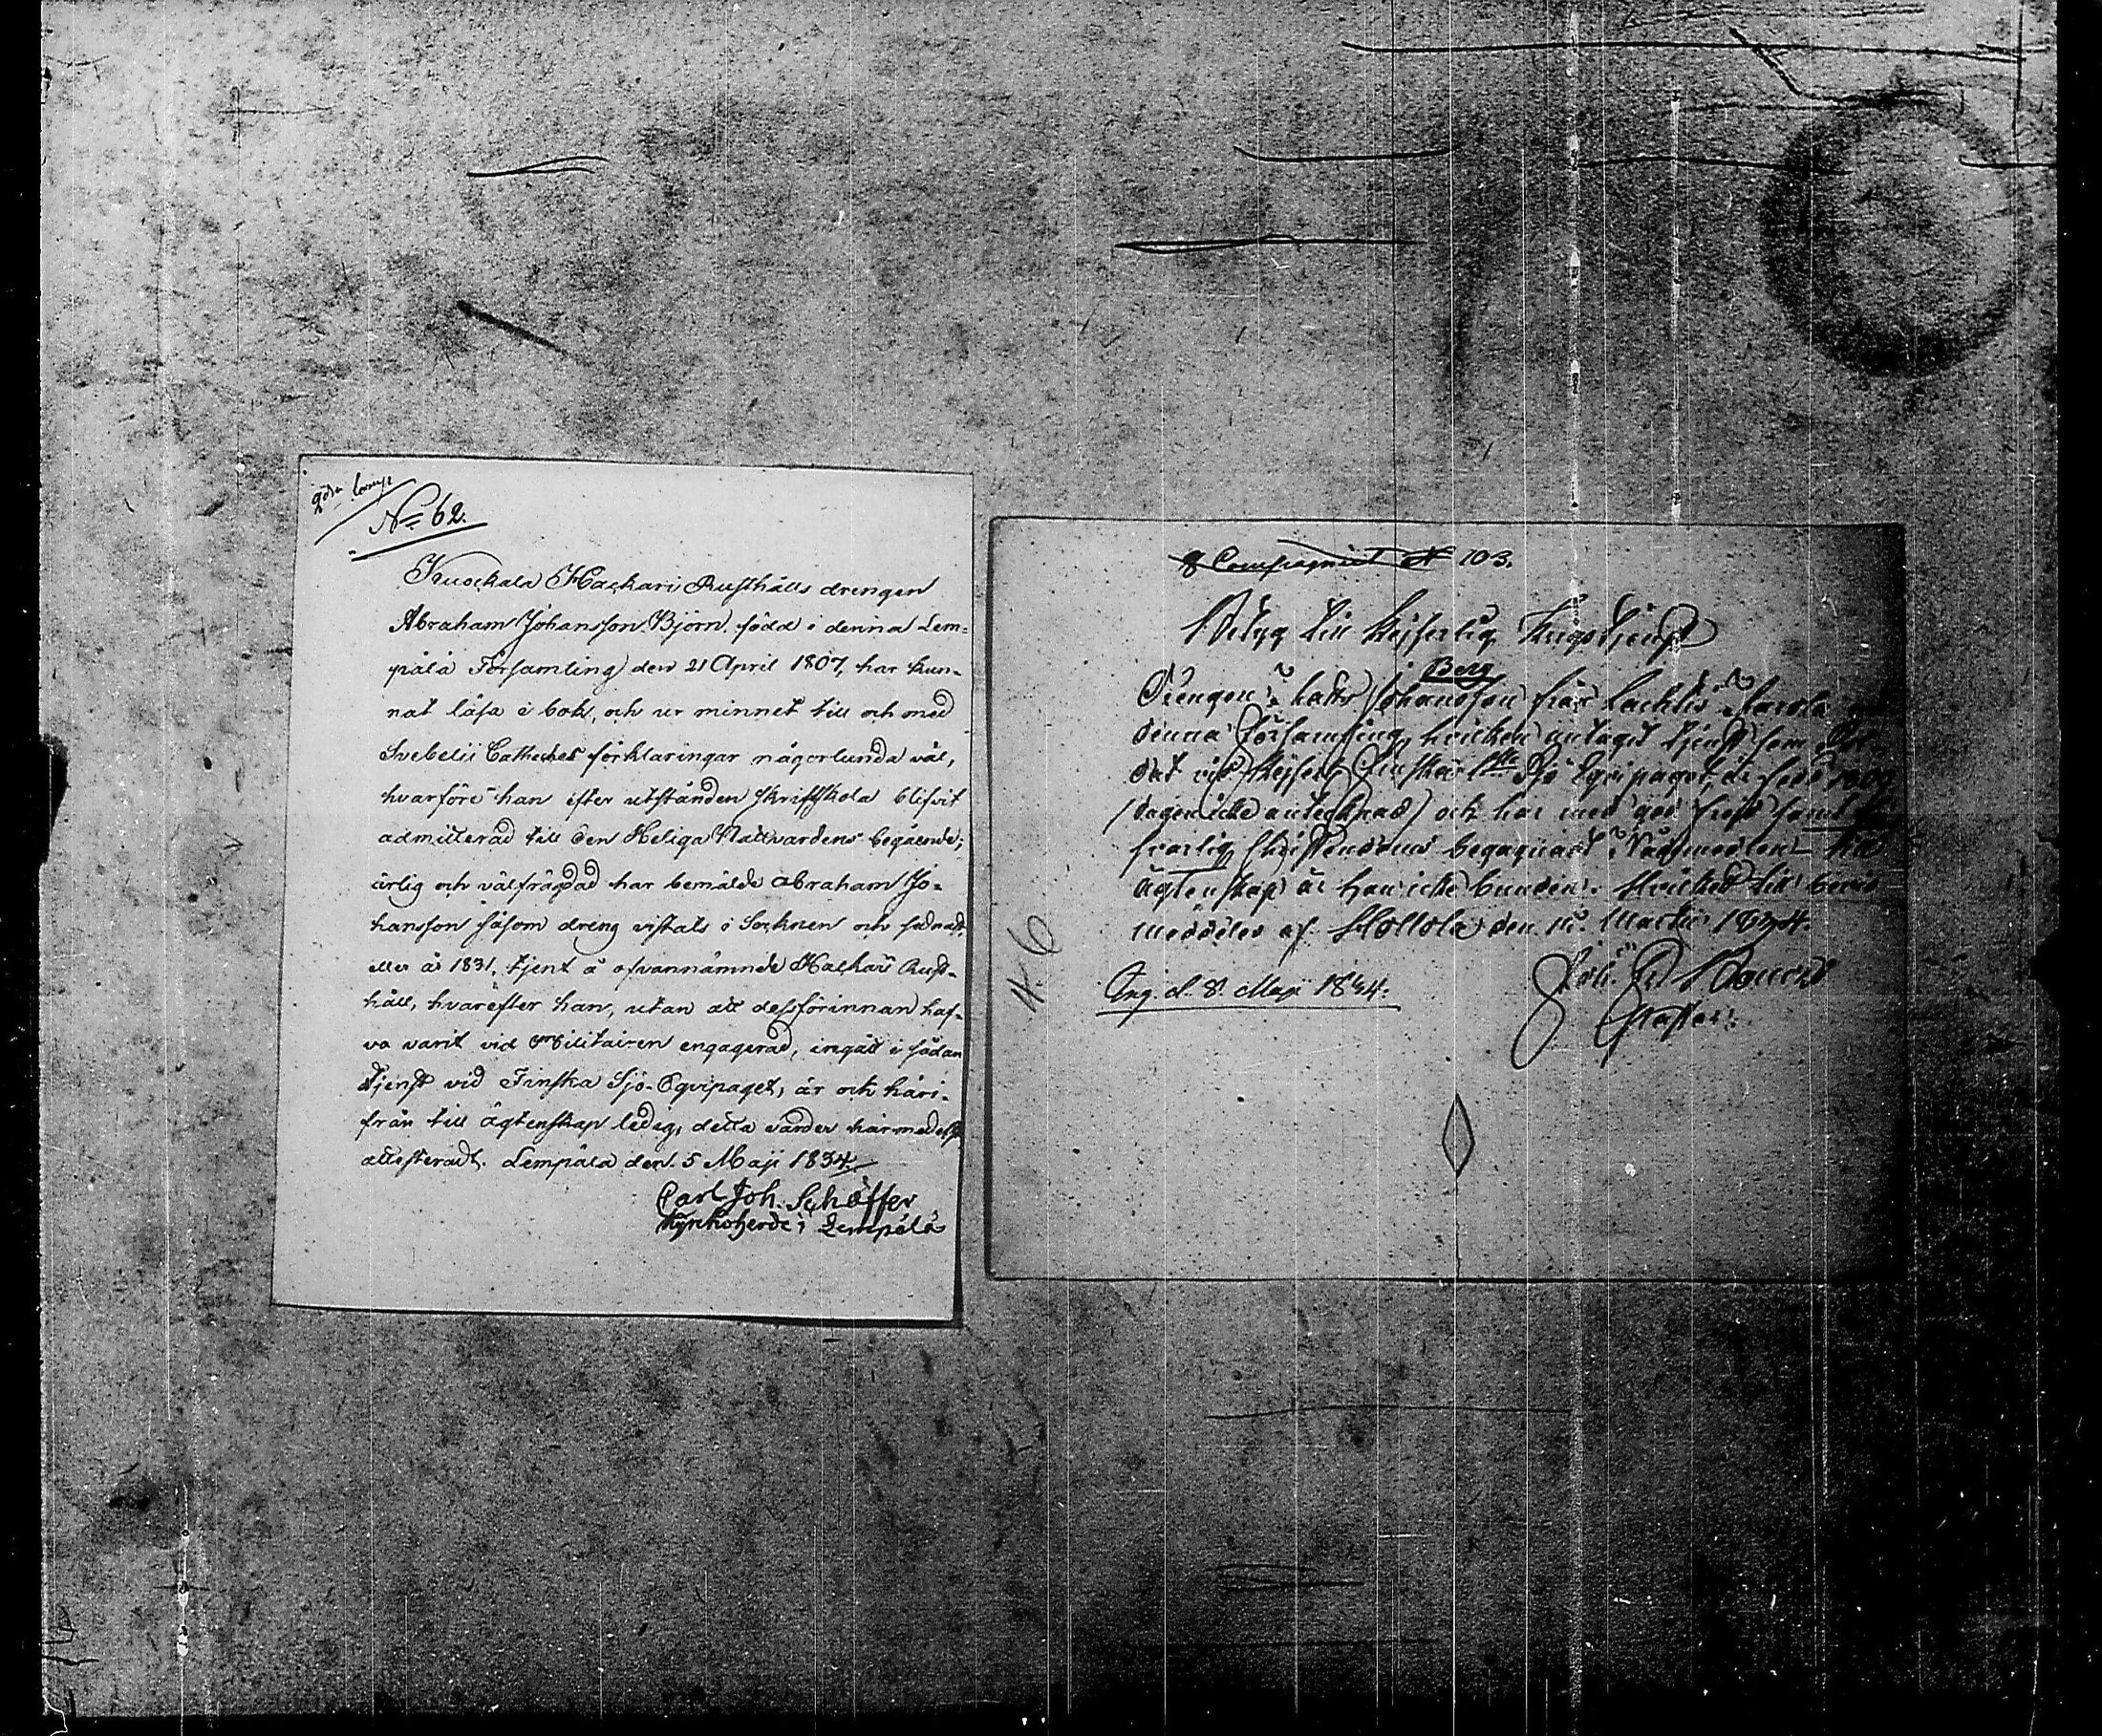 No 62.
Kuockala Hackari Rusthålls drengen
Abraham Johansson Björn, född i denna Lem=
pälä Församling den 21 April 1807, har kun=
nat läsa i bok, och ur minnet till och med
Svebelii Catheches förklaringar någorlunda väl,
hvarföre han efter utstånden skriftskola blifvit
admitterad till den Heliga Nattvardens begående;
ärlig och välfrägdad har bemälde Abraham Jo=
hansson såsom dreng vistats i Socknen och sednast,
eller år 1831, tjent å ofvannämnde Hackari Rust=
håll, hvarefter han, utan att dessförinnan haf=
va varit vid Militairen engagerad, ingått i sådan
tjenst vid Finska Sjö-Eqvipaget, är och häri=
från till ägtenskap ledig, detta varder härmedelst
attesteradt. Lempälä den 5 Maji 1834.
Carl Joh. Schöffer
Kyrkoherde i Lempälä
8 Compagniet N 103.
Betyg till Kejserlig Krigstjenst
Berg
Drengen Johansson från Lachtis
denna Församling, hvilken antagit tjenst som Sol=
dat vid Kejserl. Finska 1sta Sjö Eqvipaget, är född
(dagen icke antecknad) och har med god frejd samt
svarlig Christendoms begagnat Nådemedlen. Till
Ägtenskap är han icke bunden. Hvilket till bevis
meddeles af Hollola den Martii 1834.
Joh.
Pastor.
Ing. d. 8. Maji 1834.
46